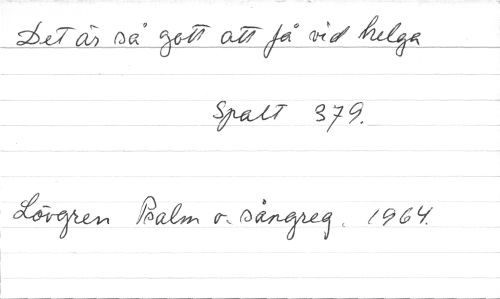 Det är så gott att få vid helga
Spalt 379.
Lövgren Psalm o. sångreg. 1964.